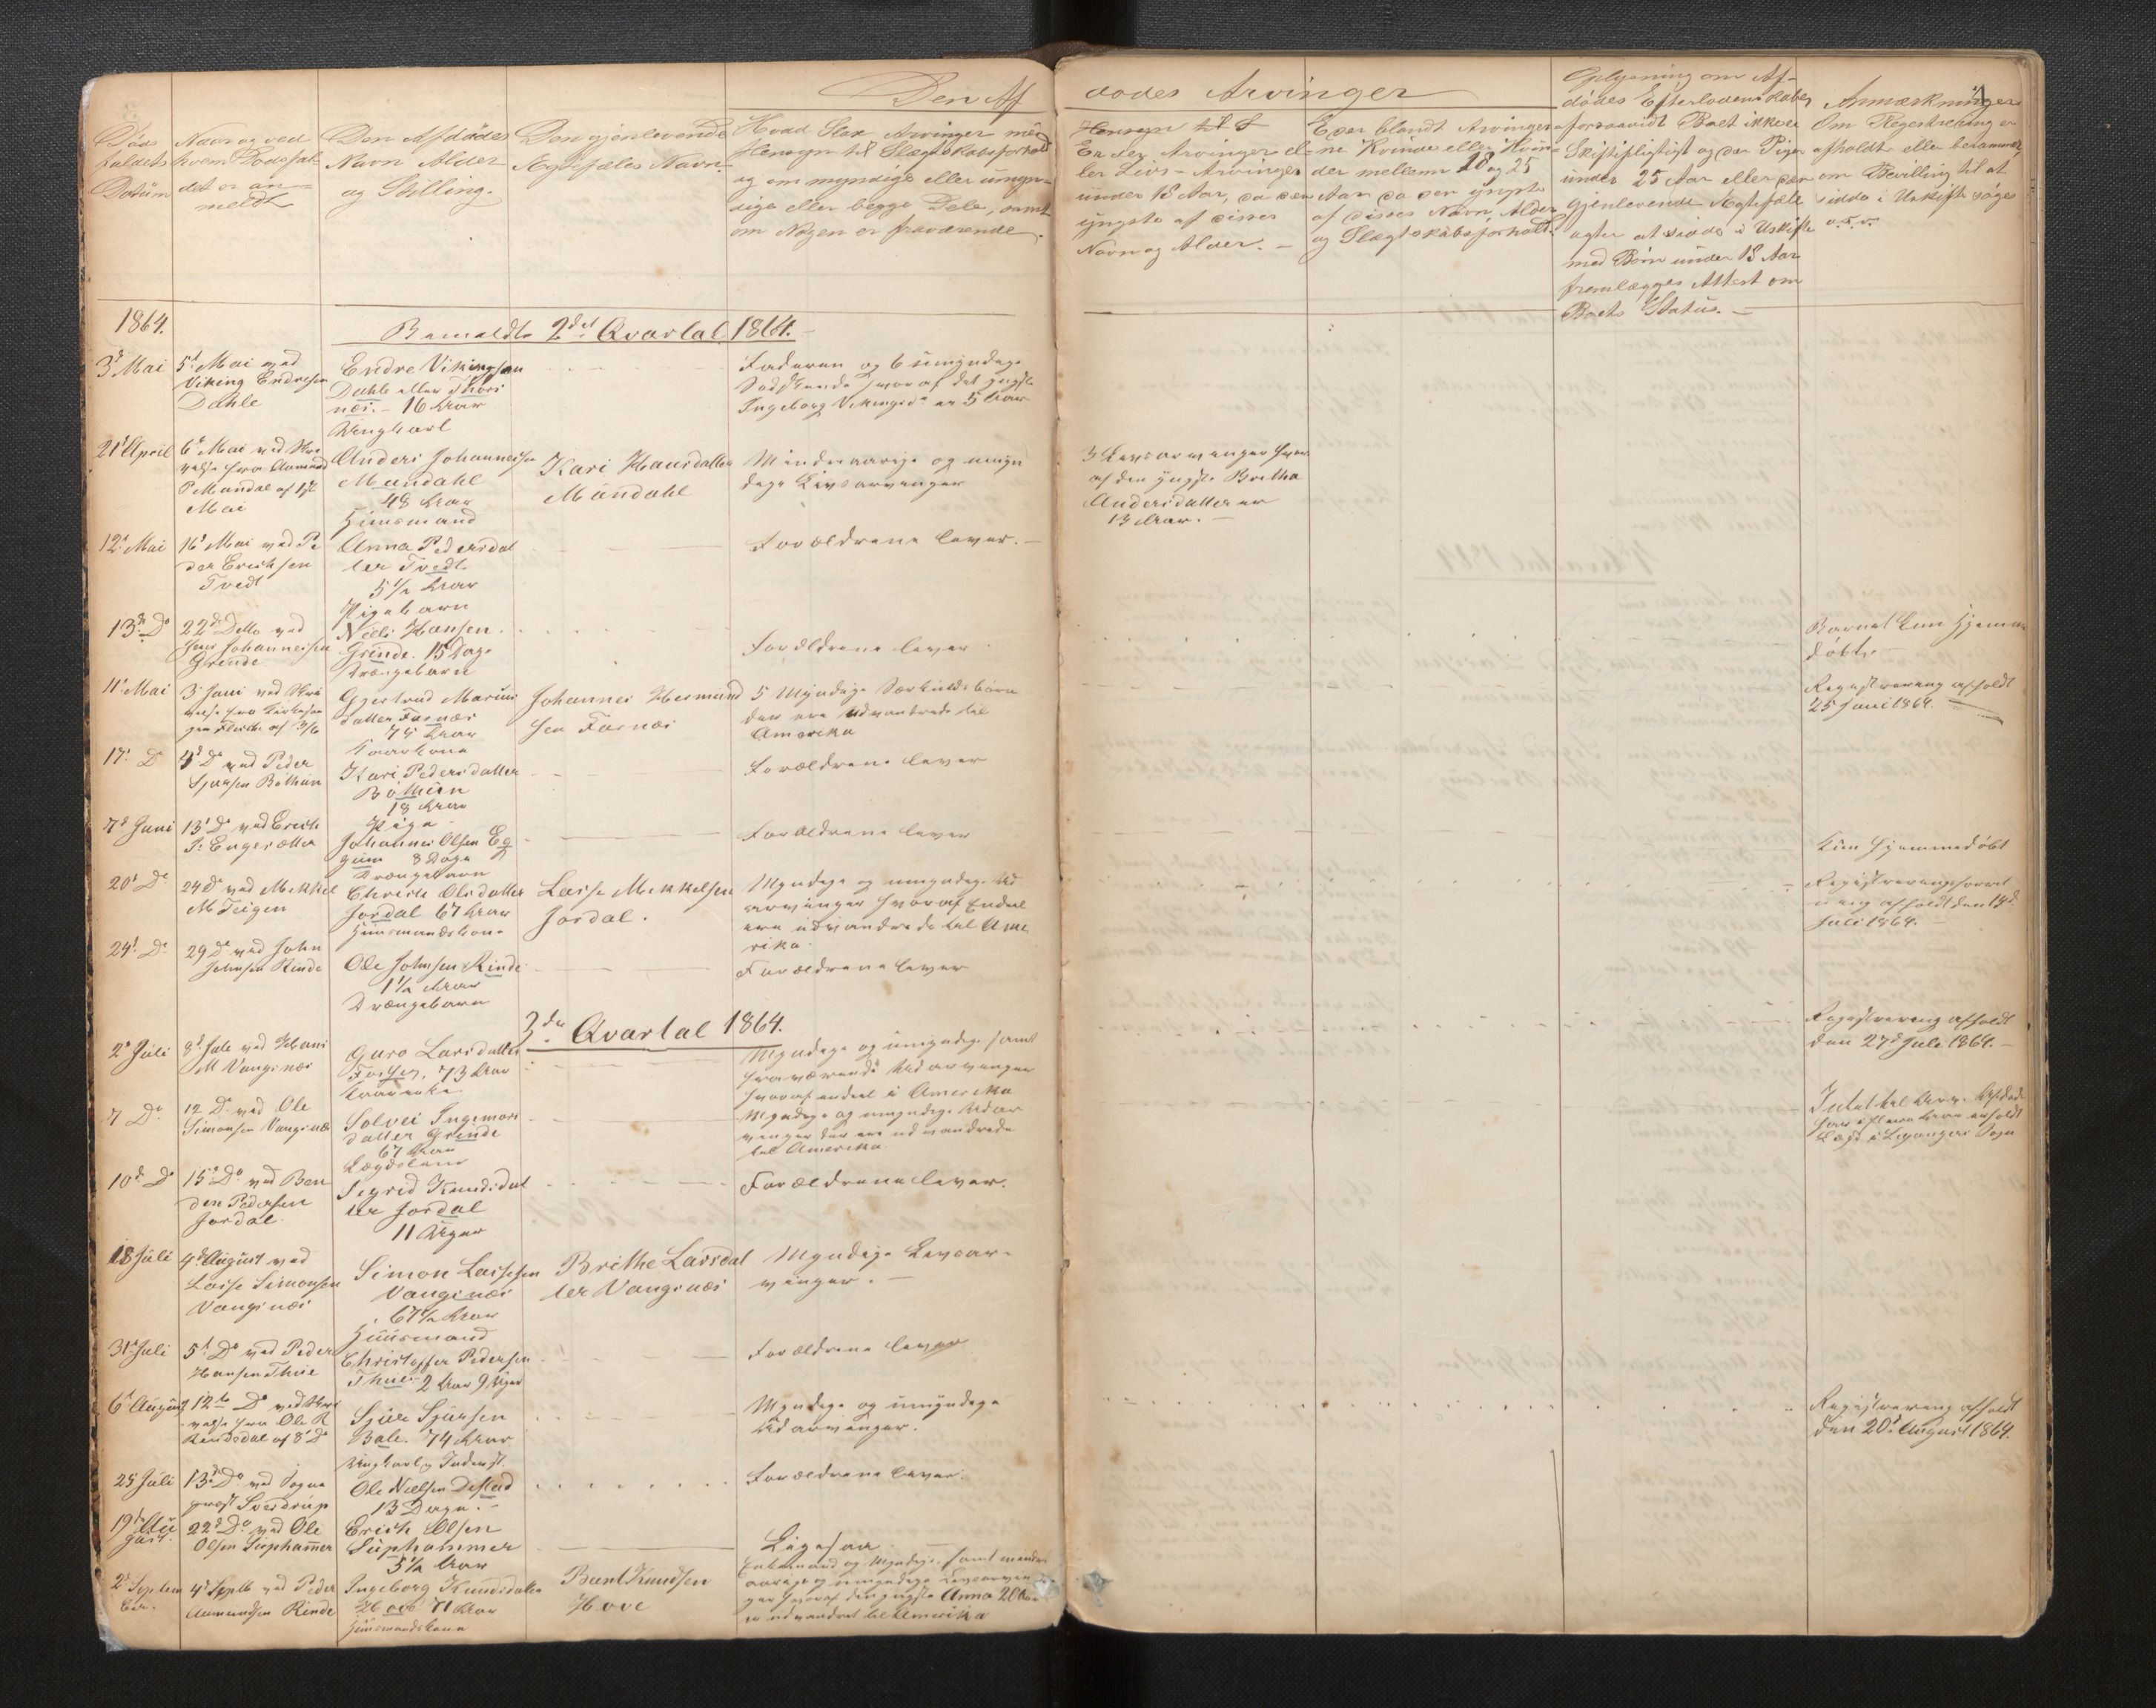 Den Af
dødes Arvinger
4
Døds
faldets
Datum
Navn og ved
hvem Dødsfal-
det er an-
meldt
Den Afdødes
Navn Alder
og Stilling.
Den gjenlevende
Ægtefæles Navn.
Hvad Slax Arvinger med
Hensyn til Slægtskabsforhold
og om myndige eller umyn-
dige eller begge Dele, samt
om Nogen er fraværende.
Hensyn til
Er der Arvinger el-
ler Livs-Arvinger
under 18 Aar, da den
yngste af disses
Navn og Alder. –
Er der blandt Arvinger-
ne Kvinde eller Kvin-
der mellem 18 og 25
Aar da den yngste
af disses Navn, Alder
og Slægtskabsforhold.
Oplysning om Af-
dødes Efterladenskaber
forsaavidt Boet ikke er
Skiftepligtigt og der Piger
under 25 Aar eller den
Gjenlevende Ægtefæle
agter at sidde i Uskifte
med Børn under 18 Aar
fremlægges Attest om
Boets Status. –
Anmærkninger
Om Registrering er
afholdt eller berammet,
om Bevilling til at
sidde i Uskifte søges
o.s.v.
1864.
Anmeldte 2det Qvartal 1864. –
3d Mai
5t Mai ved
Viking Endresen
Dahle
Endre Vikingsen
Dahle eller Thors
næs. – 16 Aar
Ungkarl
Faderen og 6 umyndige
Sødskende hvoraf det yngste
Ingeborg Vikingsd. er 5 Aar
21d April
6t Mai ved Skri
velse fra Aamund
P Mundal af 1ste
Mai
Anders Johannessen
Mundahl
48 Aar
Huusmand
Kari Hansdatter
Mundahl
Mindreaarige og umyn
dige Livsarvinger
3 Livsarvinger hvor
af den yngste Britha
Andersdatter er
13 Aar. –
12d Mai
16d Mai ved Pe
der Erichsen
Tvedt
Anna Pedersdat
ter Tvedt
5 1/2 Aar
Pigebarn
Forældrene lever. –
13de Do
22de Ditto ved
Hans Johannessen
Grinde
Niels Hansen
Grinde. 15 Dage
Drængebarn
Forældrene lever
Barnet kun hjemme
døbt. –
11t Mai
3d Juni ved Skri
velse fra Kirkesan
ger Flesche af 3/6
Gjertrud Mariusdatter
Farnæs
75 Aar
Kaarkone
Johannes Hermund
sen Farnæs
5 Myndige Særkuldsbørn
der ere udvandrede til
Amerika
Registrering afholdt
25 Juni 1864. –
17d Do
4d Do ved Peder
Sjursen Bøthun
Kari Pedersdatter
Bøthun
18 Aar
Pige
Forældrene lever
7d Juni
13d Do ved Erich
P. Engesætter
Johannes Olsen Eg
gum 8 Dage
Drængebarn
Forældrene lever
Kun hjemmedøbt
20d Do
24 Do ved Mikkel
M Teigen
Christi Olsdatter
Jordal 67 Aar
Huusmandskone
Lasse Mikkelsen
Jordal.
Myndige og umyndige Ud
arvinger hvoraf Endeel
ere udvandrede til Ame
rika
Registreringsforret
ning afholdt den 14d
Juli 1864. –
24d Do
29 Do ved John
Johnsen Rinde
Ole Johnsen Rinde
1 1/2 Aar
Drængebarn
Forældrene lever
3die Qvartal 1864.
2d Juli
8d Juli ved Hans
M Vangsnæs
Guro Larsdatter
Farnes, 73 Aar
Kaarenke
Myndige og umyndige samt
fraværende Udarvinger
hvoraf endeel i Amerika
Registrering afholdt
den 27d Juli 1864. –
7 Do
12 Do ved Ole
Simonsen Vangsnæs
Solvei Ingemors
datter Grinde
67 Aar
Lægdslem
Myndige og umyndige Udar
vinger der ere udvandrede
til Amerika
Intet til Arv. Afdøde
har i flere Aar erholdt
Lægd i Leganger Sogn
10d Do
15d Do ved Ben
den Pedersen
Jordal
Sigrid Knudsdat
ter Jordal
11 Uger
Forældrene lever.
18 Juli
4d August ved
Lasse Simonsen
Vangsnæs
Simon Lassesen
Vangsnæs
67 1/2 Aar
Huusmand
Brithe Larsdat
ter Vangsnæs
Myndige Livsar-
vinger. –
31d Juli
5t Do ved Peder
Hansen Thue
Christoffer Pedersen
Thue 2 Aar 9 Uger
Forældrene lever
6t August
12te Do ved Skri
velse fra Ole R
Rendedal af 8d Do
Sjur Sjursen
Bale. 74 Aar
Ungkarl, Inderst
Myndige og umyndige
Udarvinger.
Registrering afholdt
den 20d August 1864.
25 Juli
13d Do ved Sogne
præst Sverdrup
Ole Nielsen
13 Dage. –
Forældrene lever.
19de Au
gust.
22d Do ved Ole
Olsen Suphammer
Erich Olsen
Suphammer
5 1/2 Aar
Ligesaa
2d Septem
ber.
4d Septb ved Peder
Aamundsen Rinde
Ingeborg Knudsdatter
Hove 71 Aar
Huusmandskone
Bent Knudsen
Hove
Enkemand og Myndige samt mindre
aarige og umyndige Livsarvin
ger hvoraf den yngste Anna 20 Aar
er udvandret til Amerika